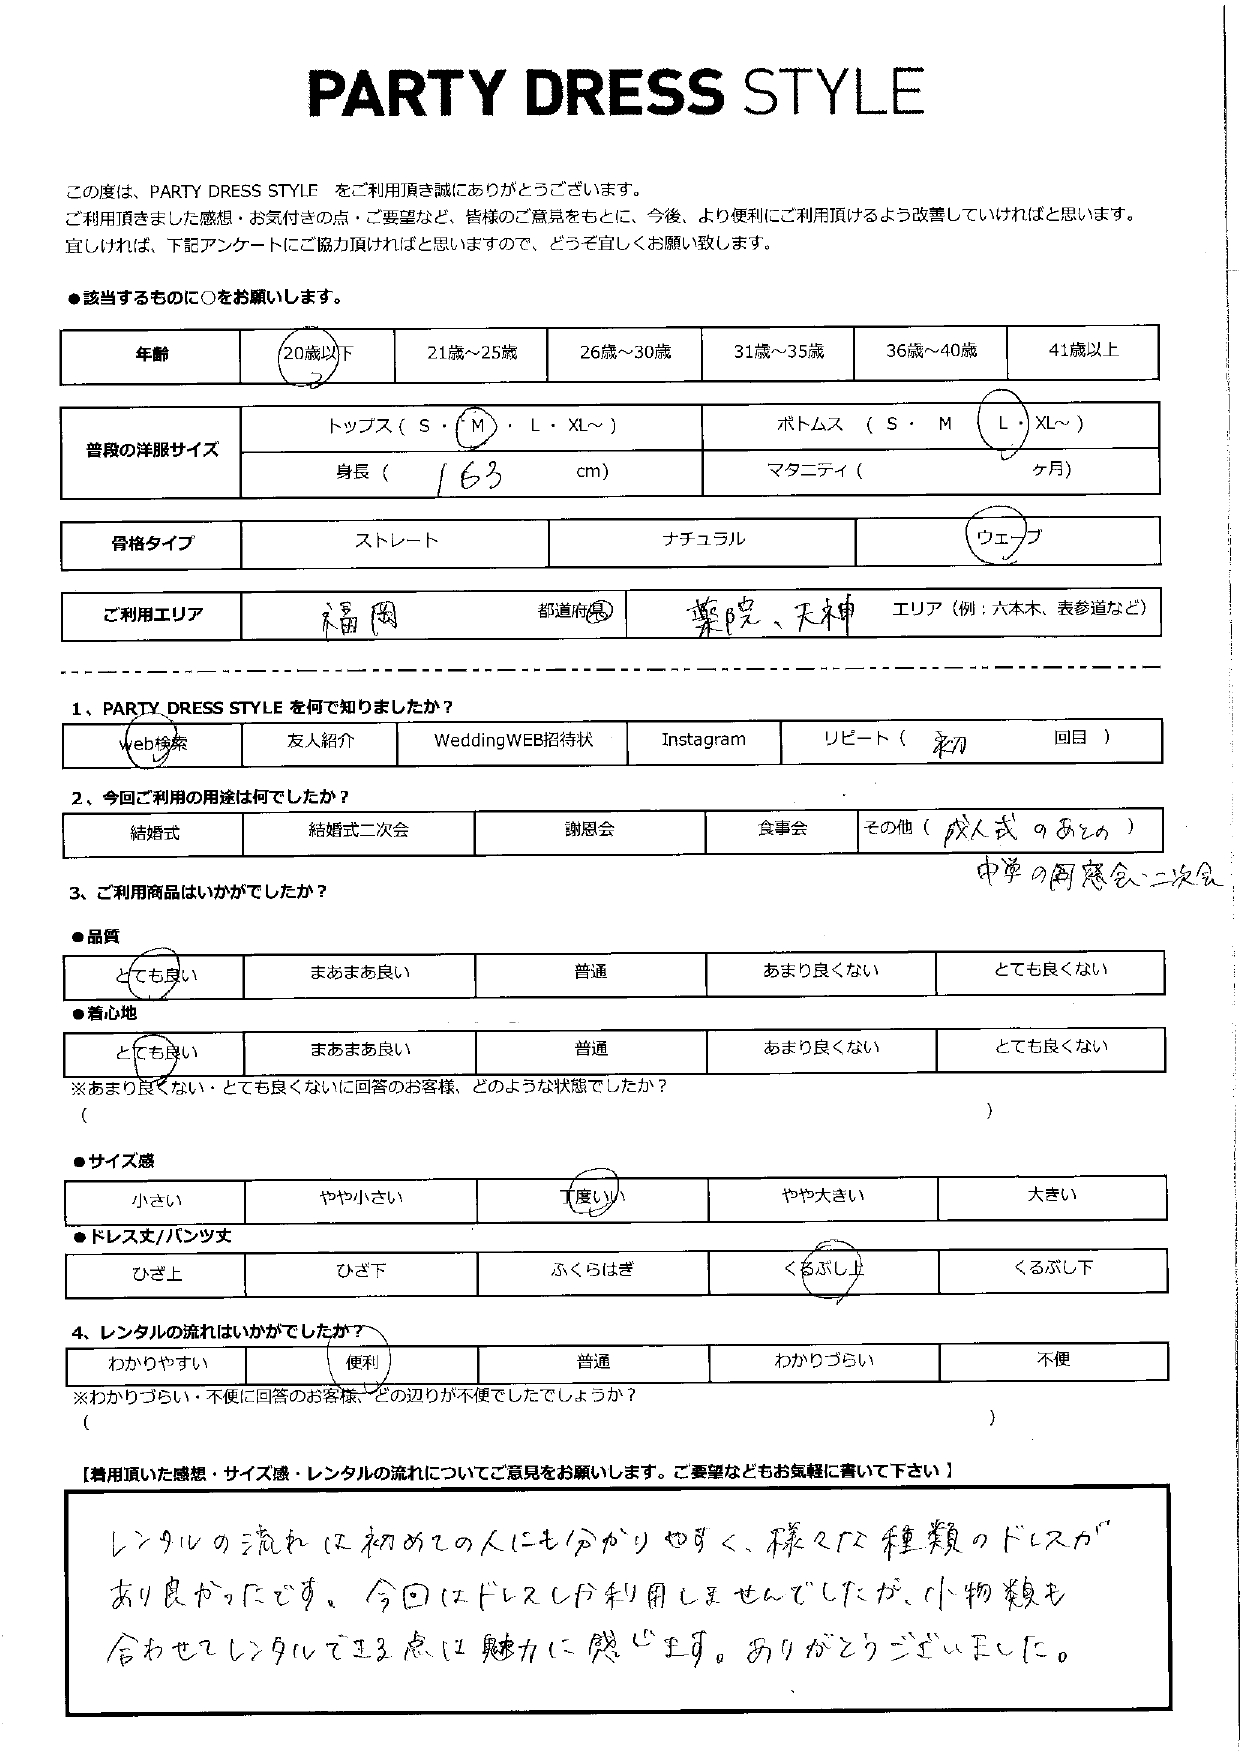 PARTY DRESS STYLE
この度は、PARTY DRESS STYLE をご利用頂き誠にありがとうございます。
ご利用頂きました感想・お気付きの点・ご要望など、皆様のご意見をもとに、今後、より便利にご利用頂けるよう改善していければと思います。
宜しければ、下記アンケートにご協力頂ければと思いますので、どうぞ宜しくお願い致します。
●該当するものに○をお願いします。
年齢 20歳以下 21歳～25歳 26歳～30歳 31歳～35歳 36歳～40歳 41歳以上
普段の洋服サイズ トップス ( S ・ M ・ L ・ XL～ ) ボトムス ( S ・ M L ・ XL～ )
身長 ( 163 cm) マタニティ ( ケ月)
骨格タイプ ストレート ナチュラル ウェーブ
ご利用エリア 福岡 都道府県 薬院、天神 エリア（例：六本木、表参道など）
1、PARTY DRESS STYLE を何で知りましたか？
Web検索 友人紹介 WeddingWEB招待状 Instagram リピート ( 初 回目 )
2、今回ご利用の用途は何でしたか？
結婚式 結婚式二次会 謝恩会 食事会 その他 ( 成人式のあとの )
中学の同窓会・二次会
3、ご利用商品はいかがでしたか？
●品質
とても良い まあまあ良い 普通 あまり良くない とても良くない
●着心地
とても良い まあまあ良い 普通 あまり良くない とても良くない
※あまり良くない・とても良くないに回答のお客様、どのような状態でしたか？
( )
●サイズ感
小さい やや小さい 丁度いい やや大きい 大きい
●ドレス丈/パンツ丈
ひざ上 ひざ下 ふくらはぎ くるぶし上 くるぶし下
4、レンタルの流れはいかがでしたか？
わかりやすい 便利 普通 わかりづらい 不便
※わかりづらい・不便に回答のお客様、どの辺りが不便でしたでしょうか？
( )
【着用頂いた感想・サイズ感・レンタルの流れについてご意見をお願いします。ご要望などもお気軽に書いて下さい】
レンタルの流れは初めての人にも分かりやすく、様々な種類のドレスが
あり良かったです。今回はドレスしか利用しませんでしたが、小物類も
合わせてレンタルできる点は魅力に感じます。ありがとうございました。